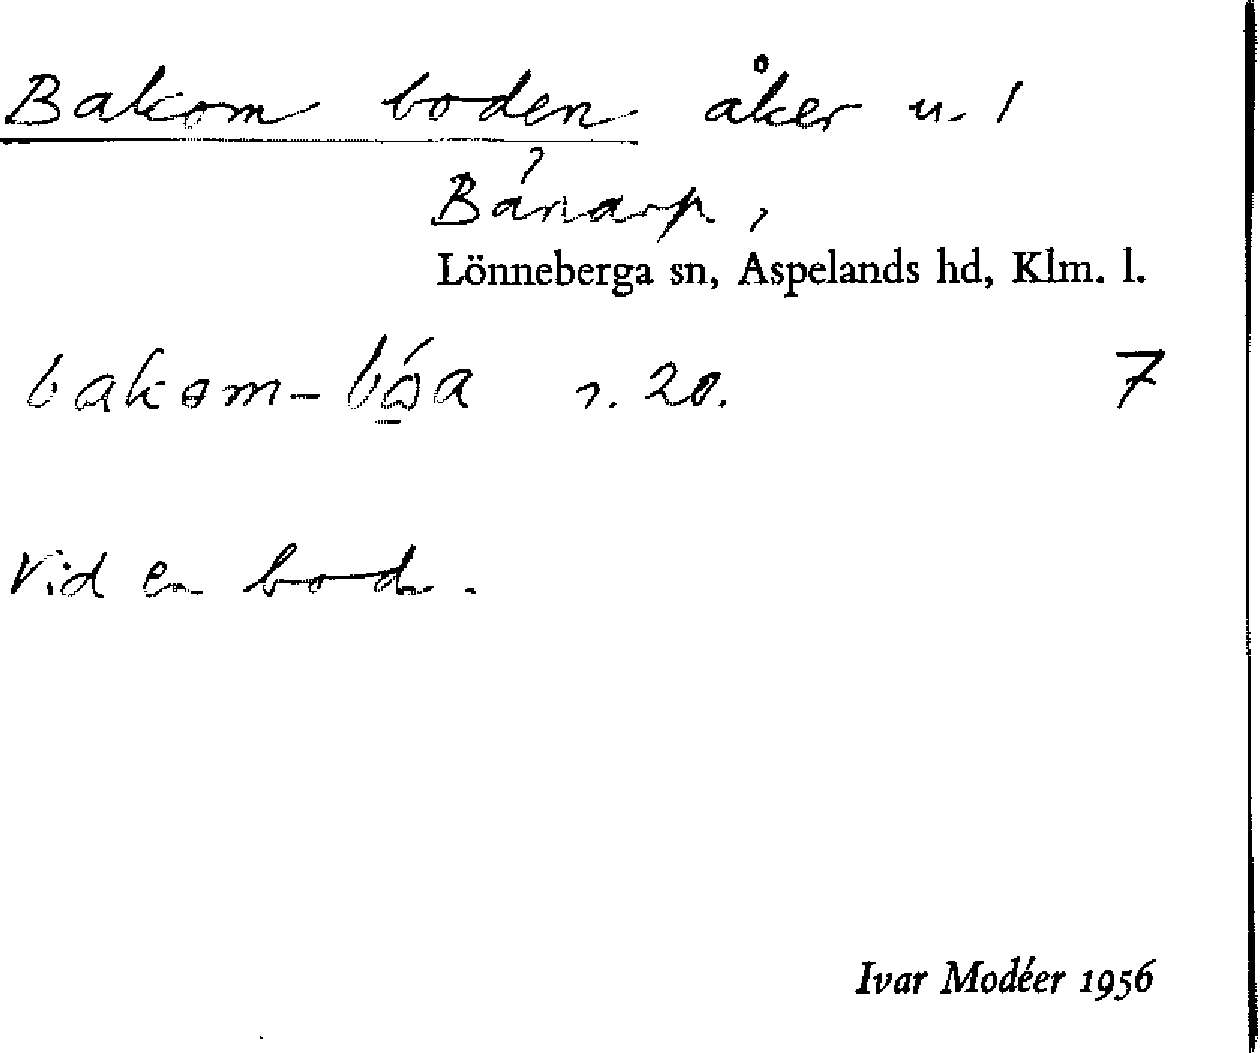 Bakom boden åker u. 1
Bånarp,
Lönneberga sn, Aspelands hd, Klm. l.
bakom-bóa s. 20. 7
Vid en bod.
Ivar Modéer 1956